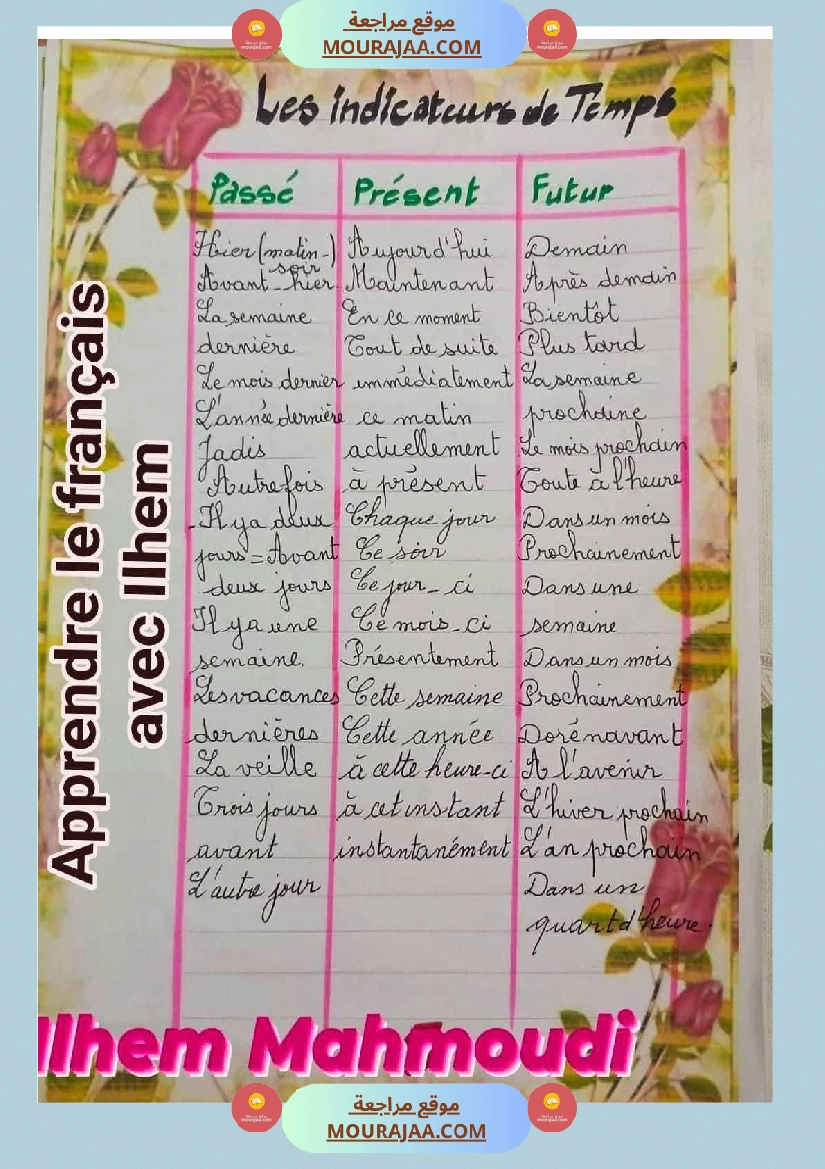 موقع مراجعة
MOURAJAA.COM
Les indicateurs de Temps
Passé
Hier (matin-)
soir
Avant-hier
La semaine
dernière
Le mois dernier
L'année dernière
Jadis
Autrefois
Il y a deux
jours = Avant
deux jours
Il y a une
semaine.
Les vacances
dernières
La veille
Trois jours
avant
L'autre jour
Présent
Aujourd'hui
Maintenant
En ce moment
Tout de suite
immédiatement
ce matin
actuellement
à présent
Chaque jour
Ce soir
Ce jour-ci
Ce mois-ci
Présentement
Cette semaine
Cette année
à cette heure-ci
à cet instant
instantanément
Futur
Demain
Après demain
Bientôt
Plus tard
La semaine
prochaine
Le mois prochain
Toute à l'heure
Dans un mois
Prochainement
Dans une
semaine
Dans un mois
Prochainement
Dorénavant
A l'avenir
L'hiver prochain
L'an prochain
Dans un
quart d'heure.
Apprendre le français
avec Ilhem
Ilhem Mahmoudi
موقع مراجعة
MOURAJAA.COM